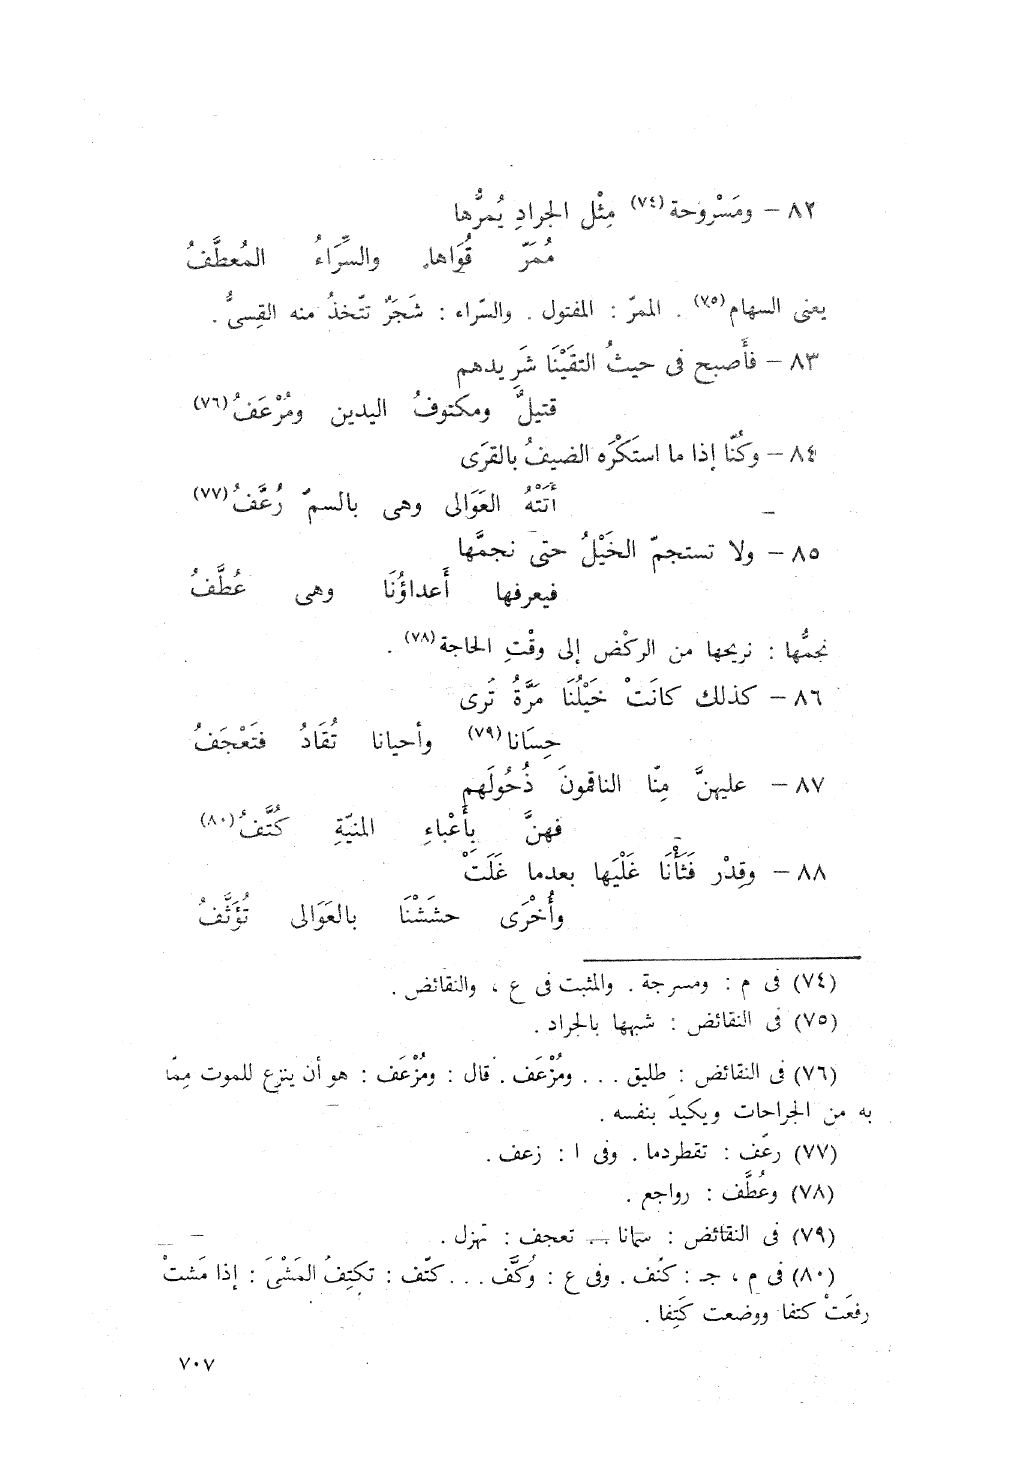 ٨٢ – ومَسْرُوحة (٧٤) مِثْل الجرادِ يُمرُّها
مُمَرّ قُوَاها، والسِّرَاءُ المُعطَّفُ
يعنى السهام (٧٥) . الممرّ : المفتول . والسّراء : شَجَرٌ تتّخذُ منه القِسىُّ .
٨٣ – فأَصبح فى حيثُ التقَيْنَا شَرِيدهم
قتيلٌ ومكتوفُ اليدين ومُزْعَفُ (٧٦)
٨٤ – وكُنّا إذا ما استَكْرَه الضيفُ بالقرَى
أَتَتْهُ العَوَالى وهى بالسمّ رُعَّفُ (٧٧)
٨٥ – ولا تستجمّ الخَيْلُ حتى نجمَّها
فيعرفها أَعداؤُنَا وهى عُطَّفُ
نجمُّها : نريحها من الركْض إلى وقْتِ الحاجة (٧٨) .
٨٦ – كذلك كانَتْ خَيْلُنَا مَرَّةً تُرى
حِسَانا (٧٩) وأحيانا تُقَادُ فتَعْجَفُ
٨٧ – عليهنَّ مِنّا الناقمونَ ذُحُولَهم
فهنَّ بِأَعْباءِ المنيّةِ كُتَّفُ (٨٠)
٨٨ – وقِدْر فَثَأْنَا غَلْيَها بعدما غَلَتْ
وأُخْرَى حشَشْنَا بالعَوَالى تُؤَثَّفُ
(٧٤) فى م : ومسرجة . والمثبت فى ع ، والنقائض .
(٧٥) فى النقائض : شبهها بالجراد .
(٧٦) فى النقائض : طليق . . . ومُزْعَف . قال : ومُزْعَف : هو أن ينزع للموت مِمّا
به من الجراحات ويكيدَ بنفسه .
(٧٧) رعّف : تقطردما . وفى ا : زعف .
(٧٨) وعُطَّف : رواجع .
(٧٩) فى النقائض : سمانا ... تعجف : تهزل .
(٨٠) فى م ، جـ : كنف . وفى ع : وُكَّف . . . كتّف : تكتِفُ المَشْىَ : إذا مَشتْ
رفعَتْ كتفا ووضعت كَتِفا .
٧٠٧